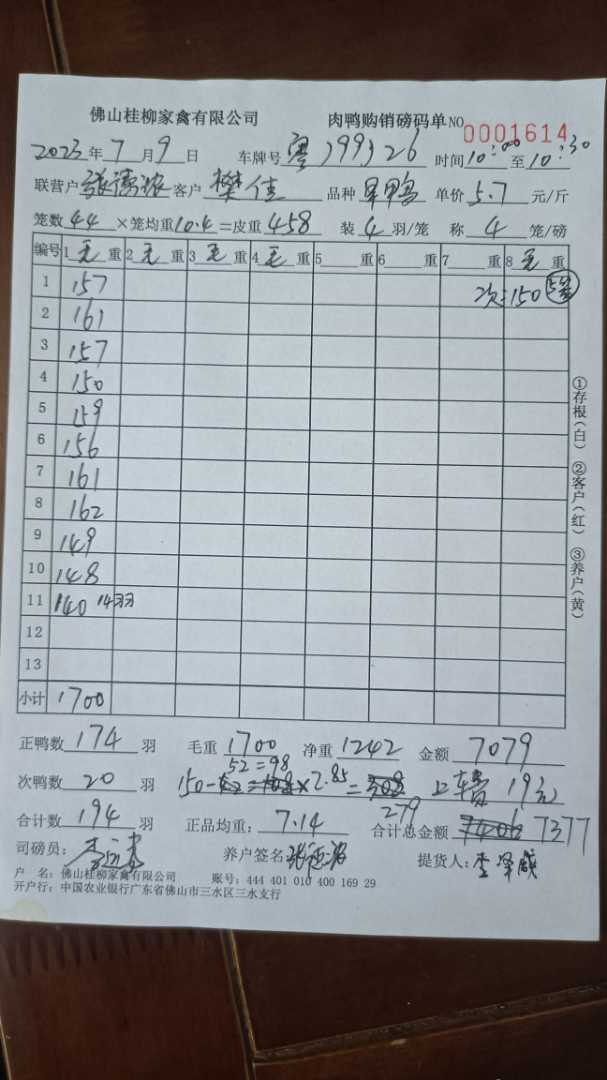 佛山桂柳家禽有限公司 肉鸭购销磅码单 NO 0001614
2023年7月9日 车牌号 粤J99J26 时间 10:00 至 10:30
联营户 客户 樊佳 品种 旱鸭 单价 5.7 元/斤
笼数 44 ×笼均重 10.4 =皮重 458 装 4 羽/笼 称 4 笼/磅
编号 1 毛 重 2 毛 重 3 毛 重 4 毛 重 5 重 6 重 7 重 8 毛 重
1 157 次=150
2 161
3 157
4 150
5 159
6 156
7 161
8 162
9 149
10 148
11 140 14羽
12
13
小计 1700
①存根(白) ②客户(红) ③养户(黄)
正鸭数 174 羽 毛重 1700 净重 1242 金额 7079
52=98
次鸭数 20 羽 150- ×2.85= 上车费 19元
279
合计数 194 羽 正品均重: 7.14 合计总金额 7377
司磅员: 养户签名 提货人:
户 名: 佛山桂柳家禽有限公司 账号: 444 401 010 400 169 29
开户行: 中国农业银行广东省佛山市三水区三水支行